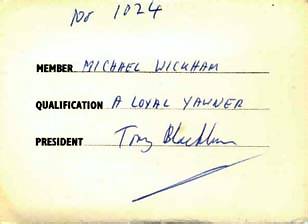 No 1024
MEMBER MICHAEL WICKHAM
QUALIFICATION A LOYAL YAWNER
PRESIDENT Tony Blackburn